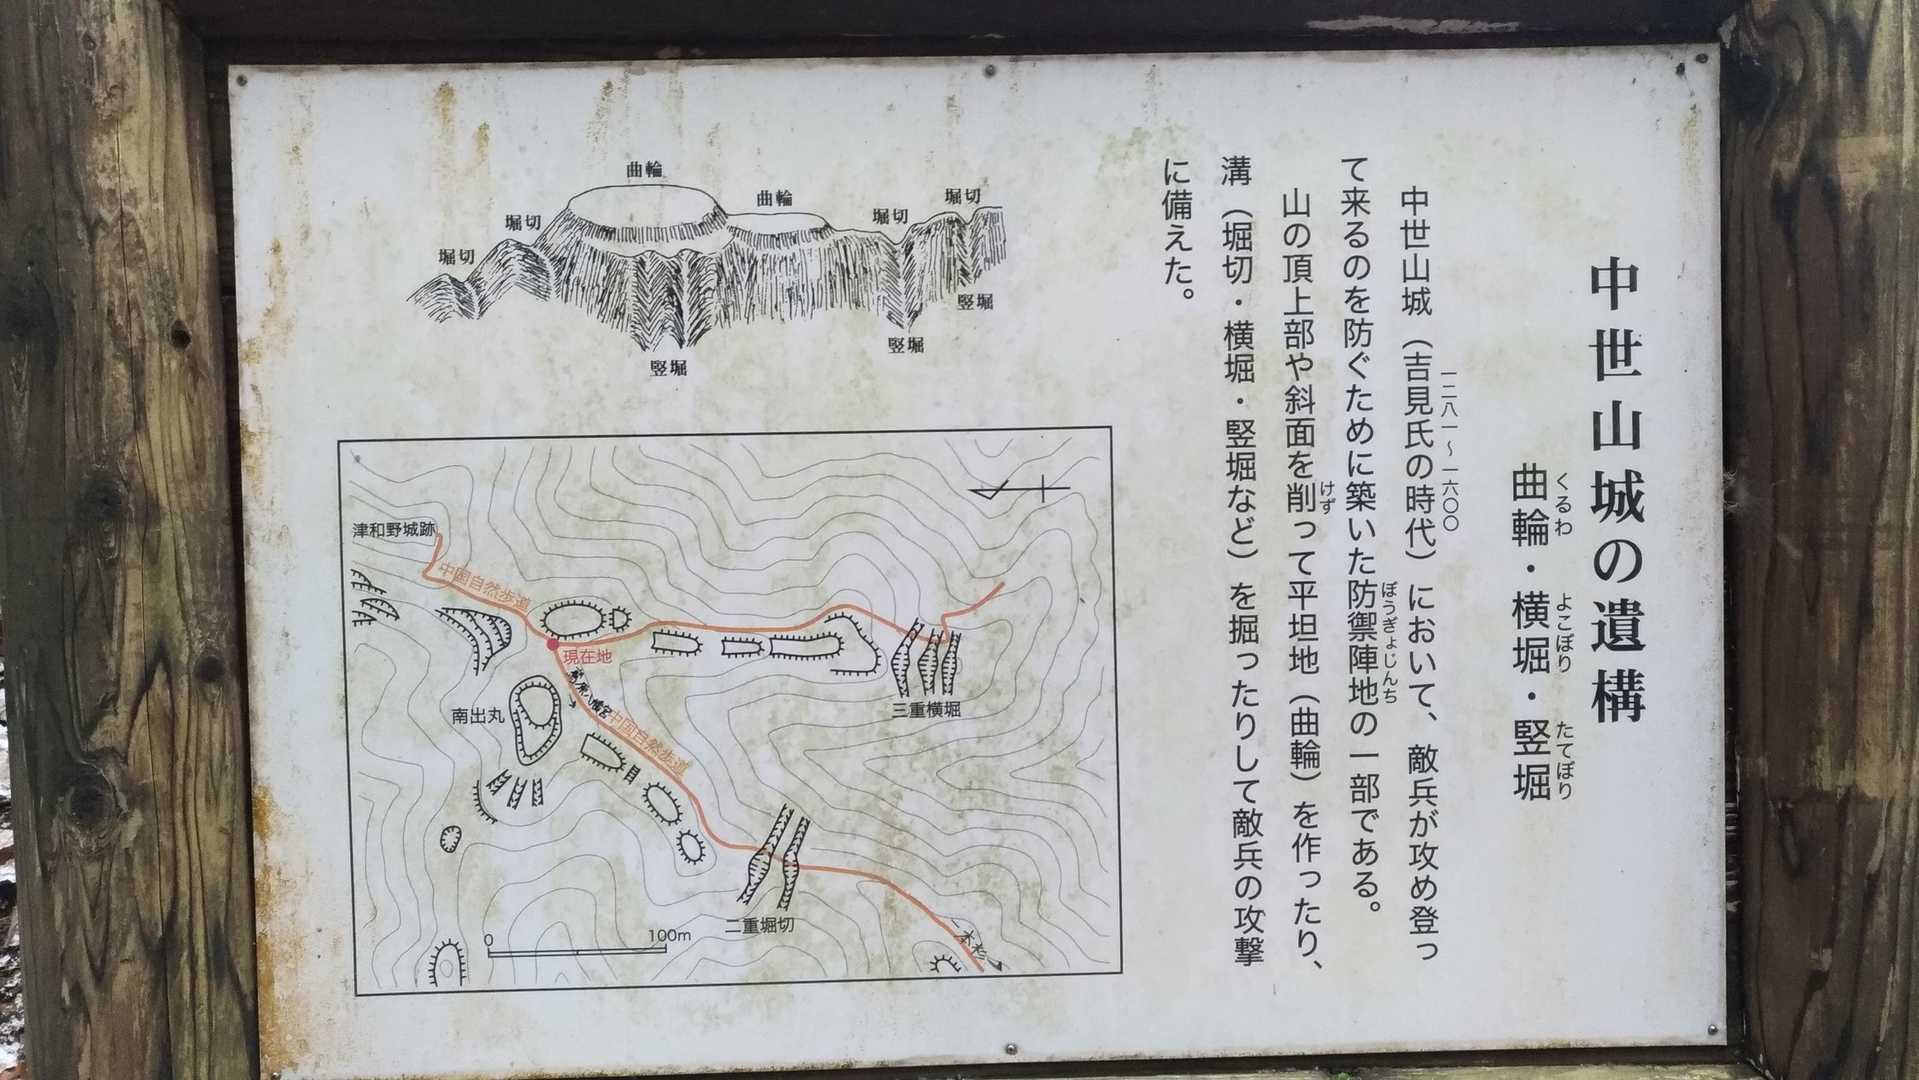 中世山城の遺構
曲輪・横堀・竪堀
くるわ
よこぼり
たてぼり
中世山城（吉見氏の時代）において、敵兵が攻め登っ
一二八一～一六〇〇
て来るのを防ぐために築いた防禦陣地の一部である。
ぼうぎょじんち
山の頂上部や斜面を削って平坦地（曲輪）を作ったり、
けず
溝（堀切・横堀・竪堀など）を掘ったりして敵兵の攻撃
に備えた。
曲輪
曲輪
堀切
堀切
堀切
堀切
竪堀
竪堀
竪堀
津和野城跡
中国自然歩道
現在地
中国自然歩道
南出丸
三重横堀
二重堀切
0
100m